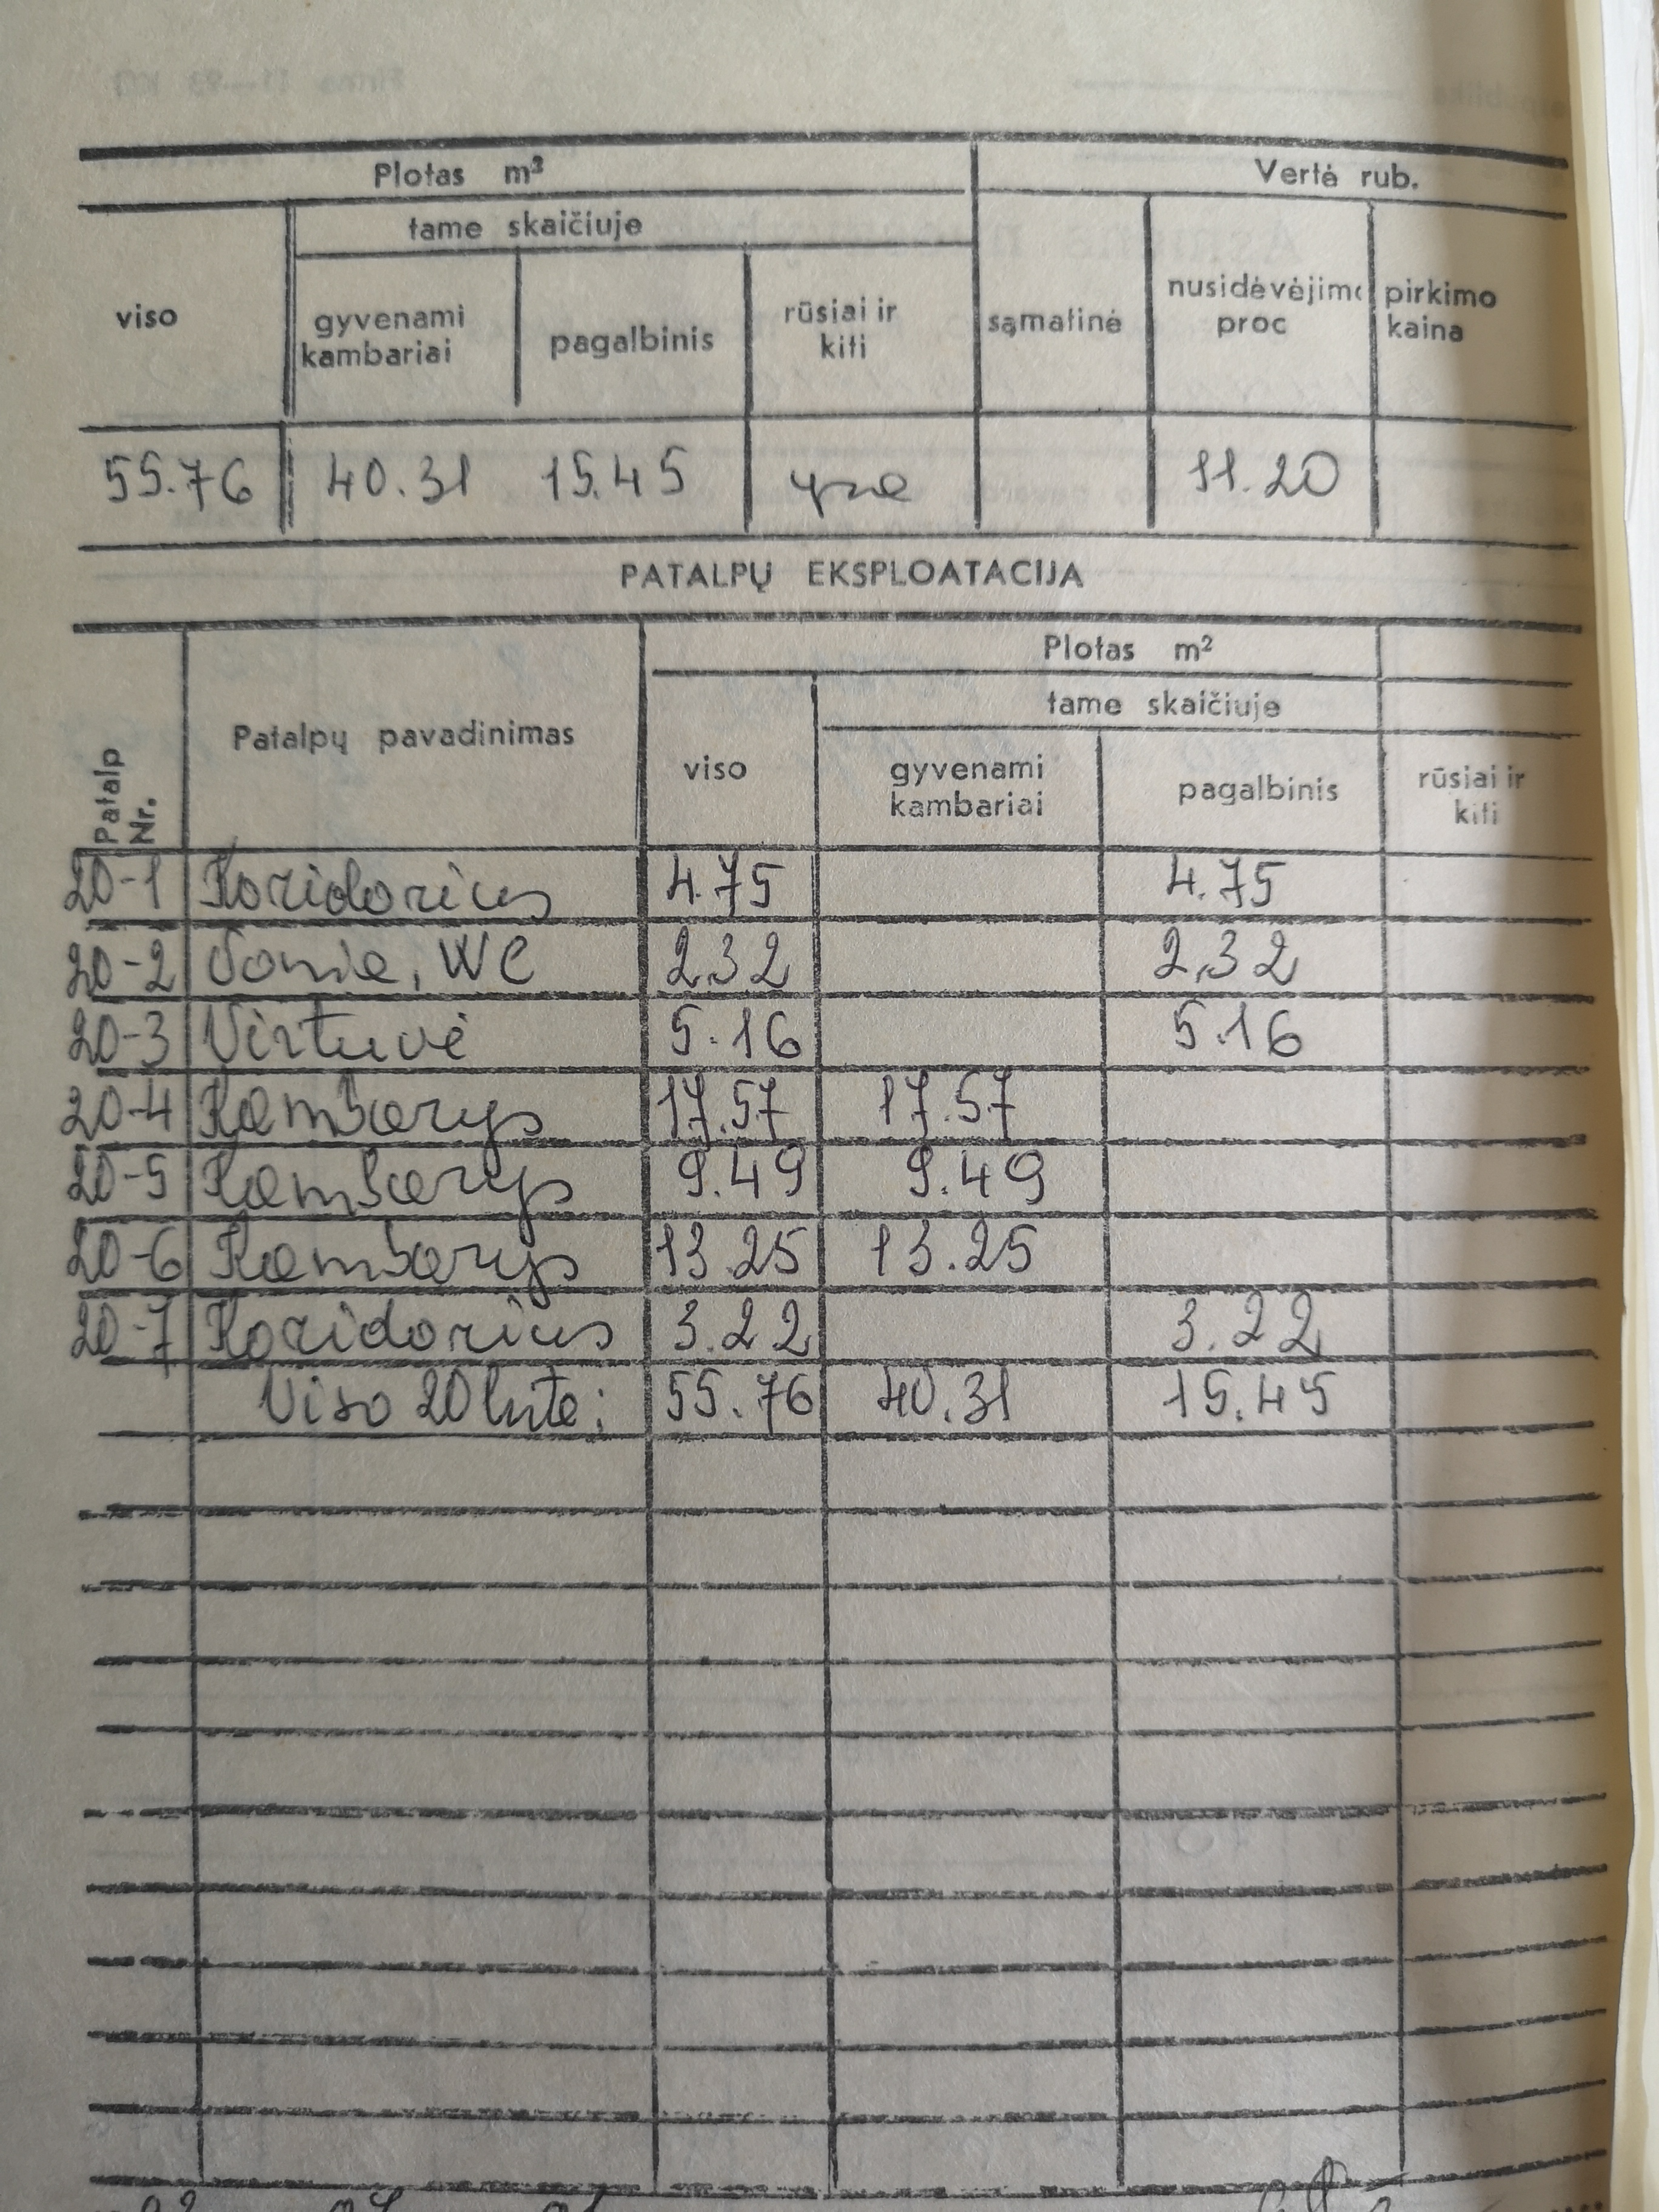 Plotas m²
Vertė rub.
tame skaičiuje
viso
gyvenami kambariai
pagalbinis
rūsiai ir kiti
sąmatinė
nusidėvėjimo proc
pirkimo kaina
55.76 40.31 15.45 yra 11.20
PATALPŲ EKSPLOATACIJA
Patalp Nr.
Patalpų pavadinimas
Plotas m²
tame skaičiuje
viso
gyvenami kambariai
pagalbinis
rūsiai ir kiti
20-1 Koridorius 4.75 4.75
20-2 Vonia, WC 2,32 2,32
20-3 Virtuvė 5.16 5.16
20-4 Kambarys 17.57 17.57
20-5 Kambarys 9.49 9.49
20-6 Kambarys 13.25 13.25
20-7 Koridorius 3.22 3.22
Viso 20 bute: 55.76 40.31 15.45